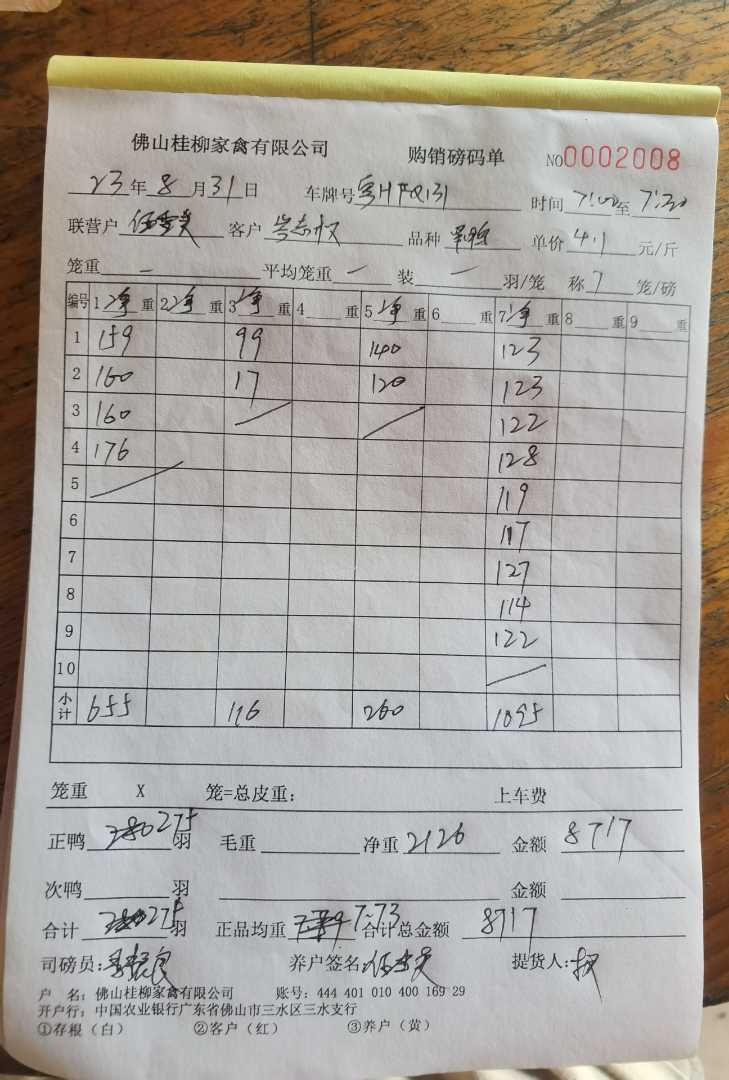 佛山桂柳家禽有限公司 购销磅码单 NO0002008
23年8月31日 车牌号粤HFQ131 时间7:00至7:30
联营户 客户 品种 单价4.1元/斤
笼重 — 平均笼重 — 装 — 羽/笼 称7笼/磅
编号 1 净重 2 净重 3 净重 4 重 5 净重 6 重 7 净重 8 重 9 重
1 159 99 140 123
2 160 17 120 123
3 160 122
4 176 128
5 119
6 117
7 127
8 114
9 122
10
小计 655 116 260 1095
笼重 X 笼=总皮重： 上车费
正鸭 275羽 毛重 净重2126 金额8717
次鸭 羽 金额
合计 275羽 正品均重 7.73 合计总金额 8717
司磅员: 养户签名: 提货人:
户 名：佛山桂柳家禽有限公司 账号：444 401 010 400 169 29
开户行：中国农业银行广东省佛山市三水区三水支行
①存根（白） ②客户（红） ③养户（黄）